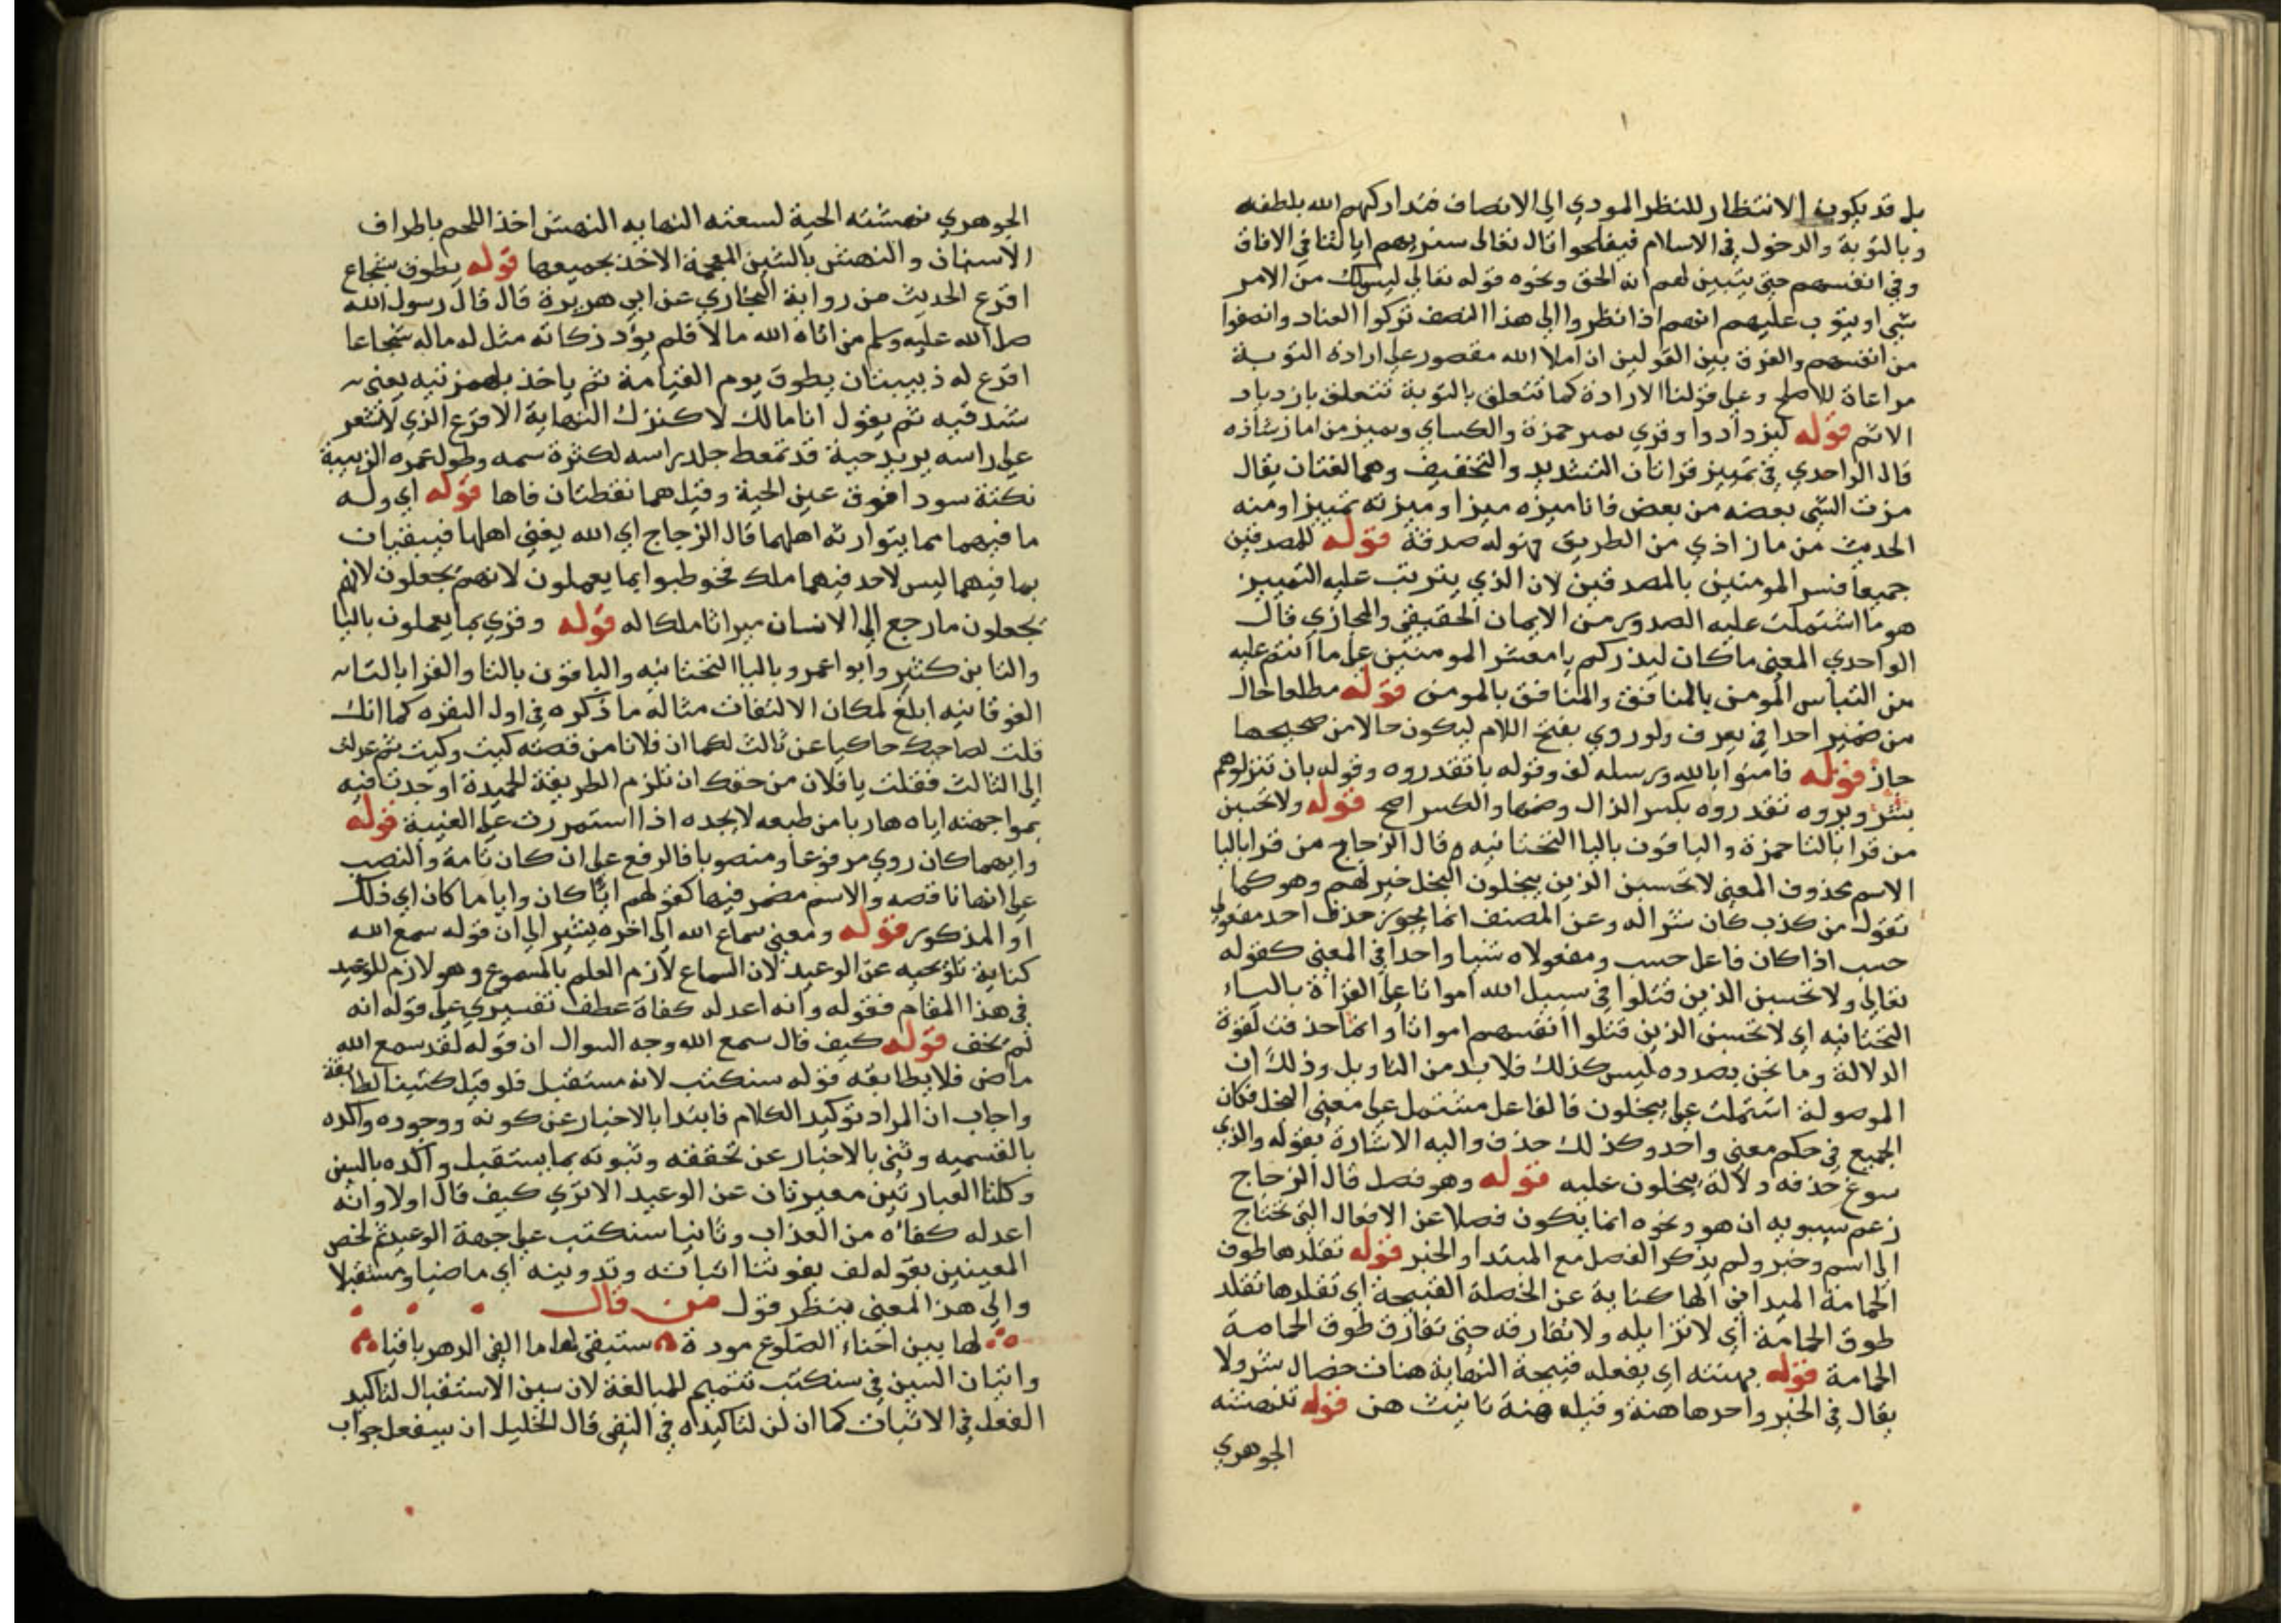 بل قد يكون الانتظار للنظر المودي الي الانصاف فتداركهم الله بلطفه
وبالتوبة والدخول في الاسلام فيفلحوا قال تعالى سنريهم اياتنا في الافاق
وفي انفسهم حتي يتبين لهم انه الحق ونحوه قوله تعالي ليس لك من الامر
شي او يتوب عليهم انهم اذا نظروا الي هذا النصف تركوا العناد وانصفوا
من انفسهم والفرق بين القولين ان املا الله مقصور علي ارادة التوبة
مراعاة للاصلح وعلي قولنا الارادة كما تتعلق بالتوبة تتعلق بازدياد
الاثم قوله ليزدادوا وقري يميز حمزة والكساي ويميز من اماز شاذه
قال الواحدي في تمييز قراتان التشديد والتخفيف وهما لغتان يقال
مزت الشي بعضه من بعض فانا اميزه ميزا وميزته تمييزا ومنه
الحديث من ماز اذي من الطريق فهو له صدقة قوله للمصدقين
جميعا فسر المومنين بالمصدقين لان الذي يترتب عليه التمييز
هو ما اشتملت عليه الصدور من الايمان الحقيقي والمجازي قال
الواحدي المعني ما كان ليذركم يا معشر المومنين علي ما انتم عليه
من التباس المومن بالمنافق والمنافق بالمومن قوله مطلعا حال
من ضمير احدا في يعرف ولو روي بفتح اللام ليكون حالا من صحيحها
جاز قوله فامنوا بالله ورسله لف وقوله بان تقدروه وقوله بان تنزلوهم
نشر ويروه تقدروه بكسر الدال وضمها والكسر اصح قوله ولا تحسبن
من قرا بالتا حمزة والباقون باليا التحتانيه وقال الزجاج من قرا باليا
الاسم محذوف المعني لا تحسبن الذين يبخلون البخل خير لهم وهو كما
تقول من كذب كان شرا له وعن المصنف انما يجوز حذف احد مفعولي
حسب اذا كان فاعل حسب ومفعولاه شيا واحدا في المعني كقوله
تعالي ولا تحسبن الذين قتلوا في سبيل الله امواتا علي القراة بالياء
التحتانيه اي لا تحسبن الذين قتلوا انفسهم امواتا وانما حذفت لقوة
الدلالة وما نحن بصدده ليس كذلك فلا بد من التاويل وذلك ان
الموصولة اشتملت علي يبخلون فالفاعل مشتمل علي معني البخل فكان
الجميع في حكم معني واحد وكذلك حذف واليه الاشارة بقوله والذي
سوغ حذفه دلالة يبخلون عليه قوله وهو فصل قال الزجاج
زعم سيبويه ان هو ونحوه انما يكون فصلا عن الافعال التي تحتاج
الي اسم وخبر ولم يذكر الفصل مع المبتدا والخبر قوله تقلدها طوق
الحمامة الميداني الها كناية عن الخصلة القبيحة اي تقلدها تقلد
طوق الحمامة اي لا تزايله ولا تفارقه حتي تفارق طوق الحمامة
الحمامة قوله بهنته اي بفعله قبيحة النهاية هنات خصال شر ولا
يقال في الخير واحدها هنة وقيله هنة تانيث هن قوله تنهشه
الجوهري
الجوهري نهشته الحية لسعته النهايه النهس اخذ اللحم باطراف
الاسنان والنهش بالشين المعجمة الاخذ بجميعها قوله يطوق بشجاع
اقرع الحديث من رواية البخاري عن ابي هريرة قال قال رسول الله
صل الله عليه وسلم من اتاه الله مالا فلم يؤد زكاته مثل له ماله شجاعا
اقرع له زبيبتان يطوق يوم القيامة ثم ياخذ بلهمزتيه يعني
شدقيه ثم يقول انا مالك انا كنزك النهاية الاقرع الذي لا شعر
علي راسه يريد حية قد تمعط جلد راسه لكثرة سمه وطول عمره الزبيبة
نكتة سودا فوق عين الحية وقيل هما نقطتان فاها قوله اي وله
ما فيهما مما يتوارثه اهلهما قال الزجاج اي الله يفني اهلها فيبقيان
بما فيهما ليس لاحد فيهما ملك فخوطبوا بما يعملون لانهم يجعلون لانهم
يجعلون ما رجع الي الانسان ميراثا ملكا له قوله وقري بما يعملون باليا
والتا بن كثير وابو اعمرو باليا التحتانيه والباقون بالتا والقرا بالتا
الفوقانيه ابلغ لمكان الالتفات مثاله ما ذكره في اول البقره كما انك
قلت لصاحبك حاكيا عن ثالث لكما ان فلانا من قصته كيت وكيت ثم عدلت
الي الثالث فقلت يا فلان من حقك ان تلزم الطريقة الحميدة اوجدت فيه
بمواجهته اياه هازا من طبعه لا يجده اذا استمررت علي الغيبة قوله
وايهما كان روي مرفوعا ومنصوبا فالرفع علي ان كان تامة والنصب
علي انها ناقصه والاسم مضمر فيها كقولهم ايا كان وايا ما كان اي ذلك
او المذكور قوله ومعني سماع الله الي اخره يشير الي ان قوله سمع الله
كناية تلويحيه عن الوعيد لان السماع لازم العلم بالمسموع وهو لازم للوعيد
في هذا المقام فقوله وانه اعد له كفاة عطف تفسيري علي قوله انه
لم يخف قوله كيف قال سمع الله وجه السوال ان قوله لقد سمع الله
ماض فلا يطابقه قوله سنكتب لانه مستقبل فلو قيل كتبنا لطابقه
واجاب ان المراد توكيد الكلام فابتدا بالاخبار عن كونه ووجوده واكده
بالقسميه وثني بالاخبار عن تحققه وثبوته بما يستقبل واكده بالسين
وكلتا العبارتين معبرتان عن الوعيد الا تري كيف قال اولا وانه
اعد له كفاه من العذاب وثانيا سنكتب علي جهة الوعيد ثم لخص
المعنيين بقوله لن يفوتنا اثباته وتدوينه اي ماضيا ومستقبلا
والي هذا المعني ينظر قول من قال
لها بين احناء الضلوع مودة ستبقي لها ما الفي الدهر باقيا
واتيان السين في سنكتب تتميم للمبالغة لان سين الاستقبال لتاكيد
الفعل في الاثبات كما ان لن لتاكيده في النفي قال الخليل ان سيفعل جواب